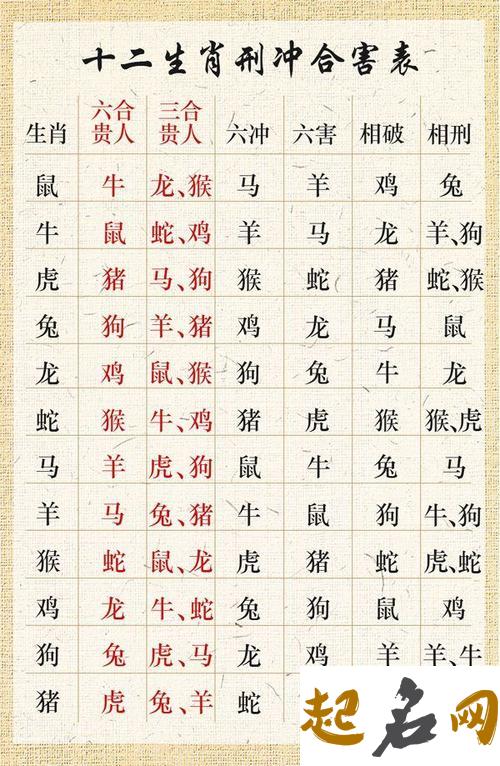 十二生肖刑冲合害表
生肖 六合贵人 三合贵人 六冲 六害 相破 相刑
鼠 牛 龙、猴 马 羊 鸡 兔
牛 鼠 蛇、鸡 羊 马 龙 羊、狗
虎 猪 马、狗 猴 蛇 猪 蛇、猴
兔 狗 羊、猪 鸡 龙 马 鼠
龙 鸡 鼠、猴 狗 兔 牛 龙
蛇 猴 牛、鸡 猪 虎 猴 猴、虎
马 羊 虎、狗 鼠 牛 兔 马
羊 马 兔、猪 牛 鼠 狗 牛、狗
猴 蛇 鼠、龙 虎 猪 蛇 虎、蛇
鸡 龙 牛、蛇 兔 狗 鼠 鸡
狗 兔 虎、马 龙 鸡 羊 羊、牛
猪 虎 兔、羊 蛇
起名网